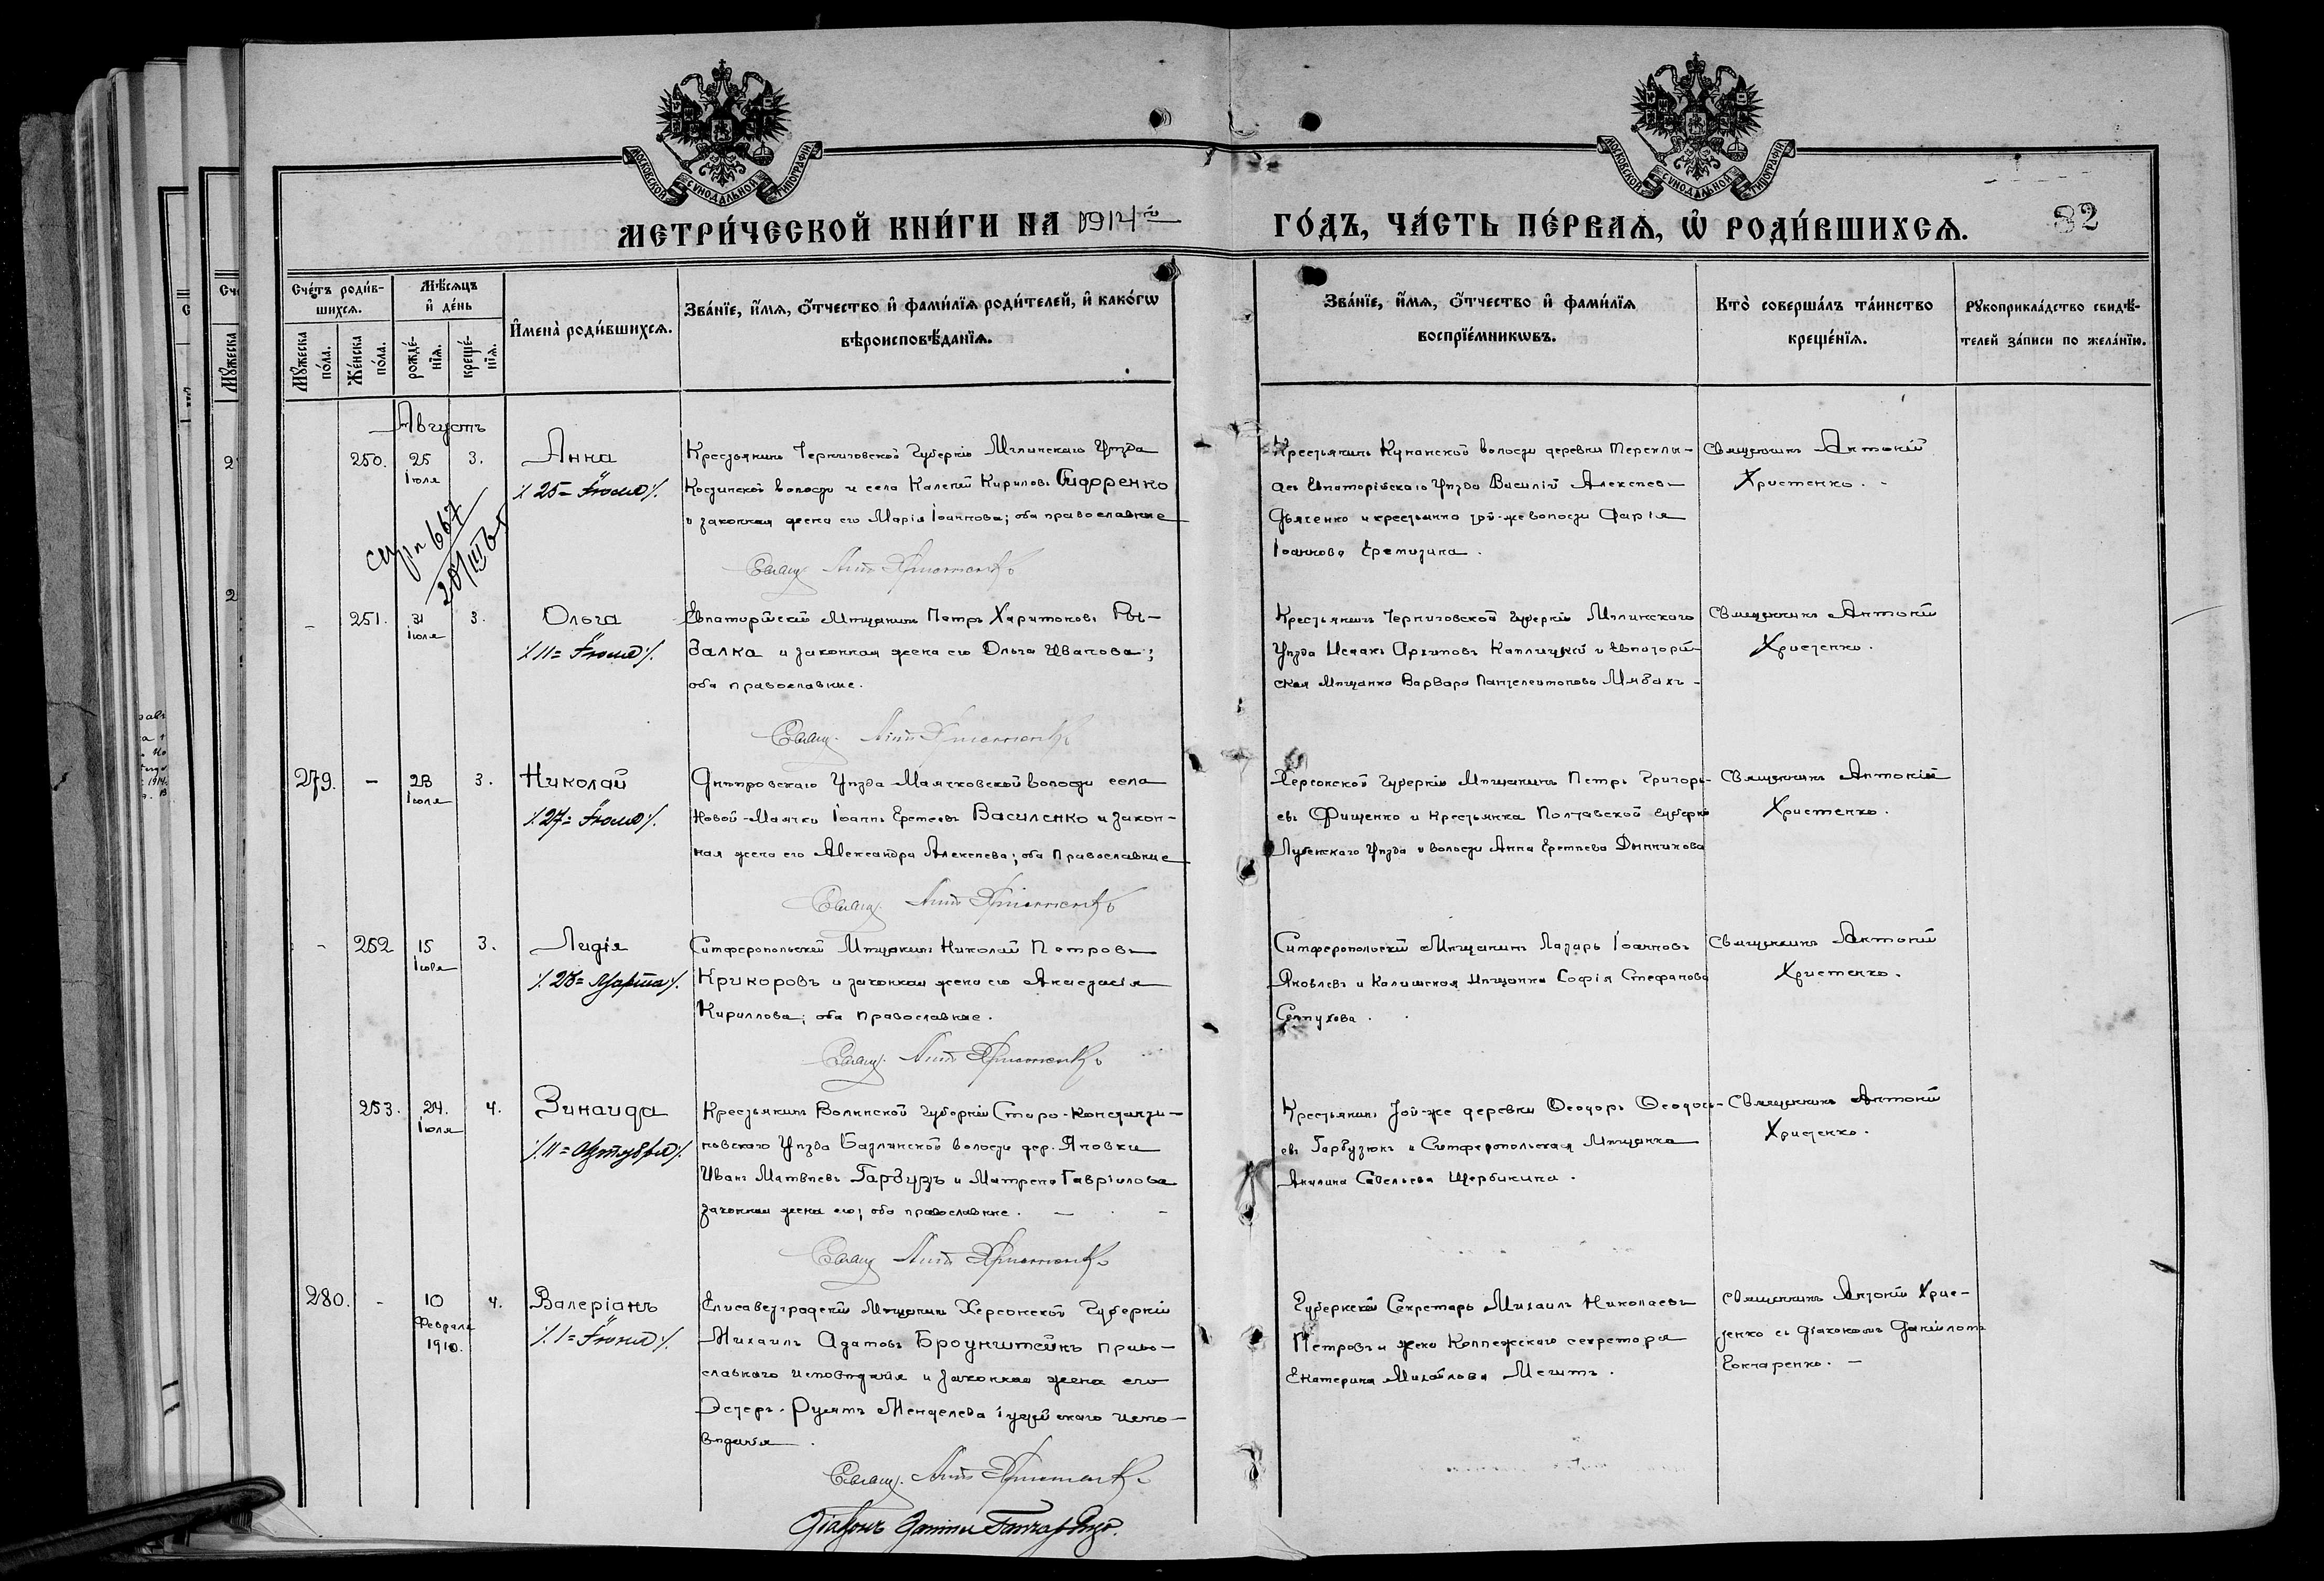 МОСКОВСКОЙ СѴНОДАЛЬНОЙ ТИПОГРАФІИ
МОСКОВСКОЙ СѴНОДАЛЬНОЙ ТИПОГРАФІИ
МЕТРИ́ЧЕСКОЙ КНИ́ГИ НА 1914й
ГО́ДЪ, ЧА́СТЬ ПЕ́РВАѦ, Ѿ РОДИ́ВШИХСѦ.
32
Сче́тъ роди́в-
шихсѧ.
Мꙋжеска по́ла.
Же́нска по́ла.
Мѣ́сѧцъ
и де́нь
рожде́-
нїѧ.
креще́-
нїѧ.
Имена̀ роди́вшихсѧ.
Зва́нїе, и́мѧ, ѻ́тчество и фами́лїѧ роди́телей, и како́гѡ
вѣроисповѣ́данїѧ.
Зва́нїе, и́мѧ, ѻ́тчество и фами́лїѧ
воспрїе́мникѡвъ.
Кто̀ соверша́лъ та́инство
креще́нїѧ.
Рꙋкоприкла́дство свидѣ́-
телей за́писи по жела́нїю.
Августъ
250. 25 Іюля 3. Анна
25 = Іюля
Крестьянинъ Черниговской Губерніи Мглинскаго Уѣзда
Костинской волости и села Кирилов Сидоренко
и законная жена его Марія Іоаннова; оба православные
Свящ. Ант. Христенко
Крестьянинъ Кунанской волости деревни
Евпаторійскаго Уѣзда Василій Алексѣев
Дьяченко и крестьянка той-же волости Дарія
Іоаннова
Священникъ Антоній
Христенко.
667
20/III 65
251. 31 Іюля 3. Ольга
11 = Іюля
Евпаторійскій Мѣщанинъ Петръ Харитоновъ Ры-
балка и законная жена его Ольга Иванова;
оба православные.
Свящ. Ант. Христенко
Крестьянинъ Черниговской Губерніи Мглинскаго
Уѣзда Исаакъ Архиповъ Каплицкій и Евпаторій-
ская Мѣщанка Варвара Пантелеимонова
Священникъ Антоній
Христенко.
279. - 23 Іюля 3. Николай
27 = Іюля
Днѣпровскаго Уѣзда Маячковской волости села
Новой-Маячки Іоаннъ Василенко и закон-
ная жена его Александра Алексѣева; оба Православные
Свящ. Ант. Христенко
Херсонской Губерніи Мѣщанинъ Петръ Григорь-
евъ Фищенко и Крестьянка Полтавской Губерніи
Лубенскаго Уѣзда и волости Анна Дынникова
Священникъ Антоній
Христенко.
- 252 15 Іюля 3. Лидія
23 = Марта
Симферопольскій Мѣщанинъ Николай Петровъ
Крикоровъ и законная жена его Анастасія
Кириллова; оба Православные.
Свящ. Ант. Христенко
Симферопольскій Мѣщанинъ Лазарь Іоанновъ
Яковлевъ и Мѣщанка Софія Стефанова
Священникъ Антоній
Христенко.
253. 24. Іюля 4. Зинаида
11 = Октября
Крестьянинъ Волынской Губерніи Старо-Константи-
новскаго Уѣзда волости дер. Яновки
Иванъ Матвѣевъ Гарбузъ и Матрена Гавріилова
законная жена его; оба православные.
Свящ. Ант. Христенко
Крестьянинъ той-же деревни Ѳеодоръ Ѳеодось-
евъ Гарбузюкъ и Симферопольская Мѣщанка
Акилина Савельева Щербинина.
Священникъ Антоній
Христенко.
280. - 10 Февраля 1910. 4. Валеріанъ
1 = Іюня
Елисаветградскій Мѣщанинъ Херсонской Губерніи
Михаилъ Адамовъ Броунштейнъ право-
славнаго исповѣданія и законная жена его
Эстеръ-Руфь Менделева іудейскаго испо-
вѣданія.
Свящ. Ант. Христенко
Діаконъ Даніилъ Гончаренко.
Губернскій Секретарь Михаилъ Николаевъ
Петровъ и жена Коллежскаго секретаря
Екатерина Михайлова
Священникъ Антоній Хрис-
тенко съ діакономъ Даніиломъ
Гончаренко. -